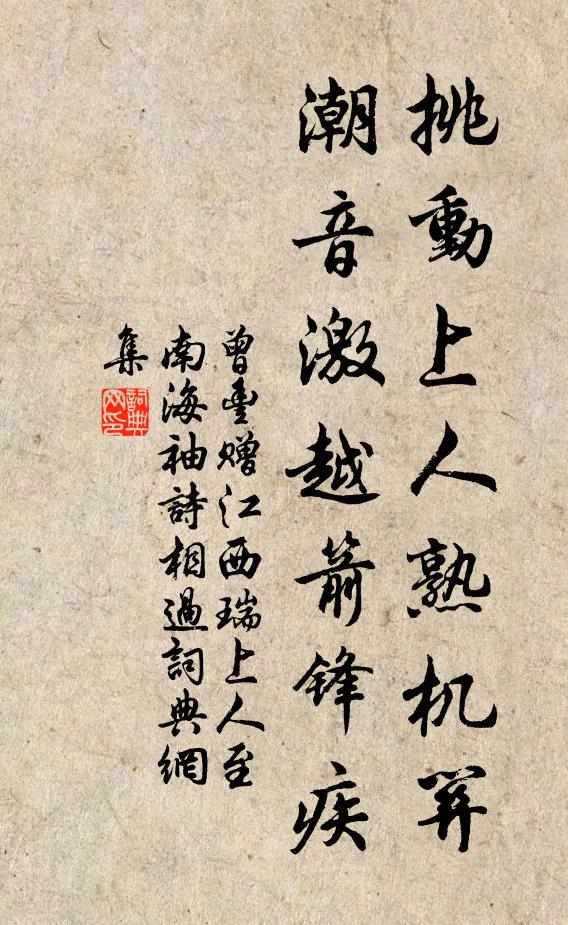 挑動上人熟机關
潮音激越箭鋒疾
曾豐贈江西瑞上人至
南海袖詩相過詞典網
集
詞典網印